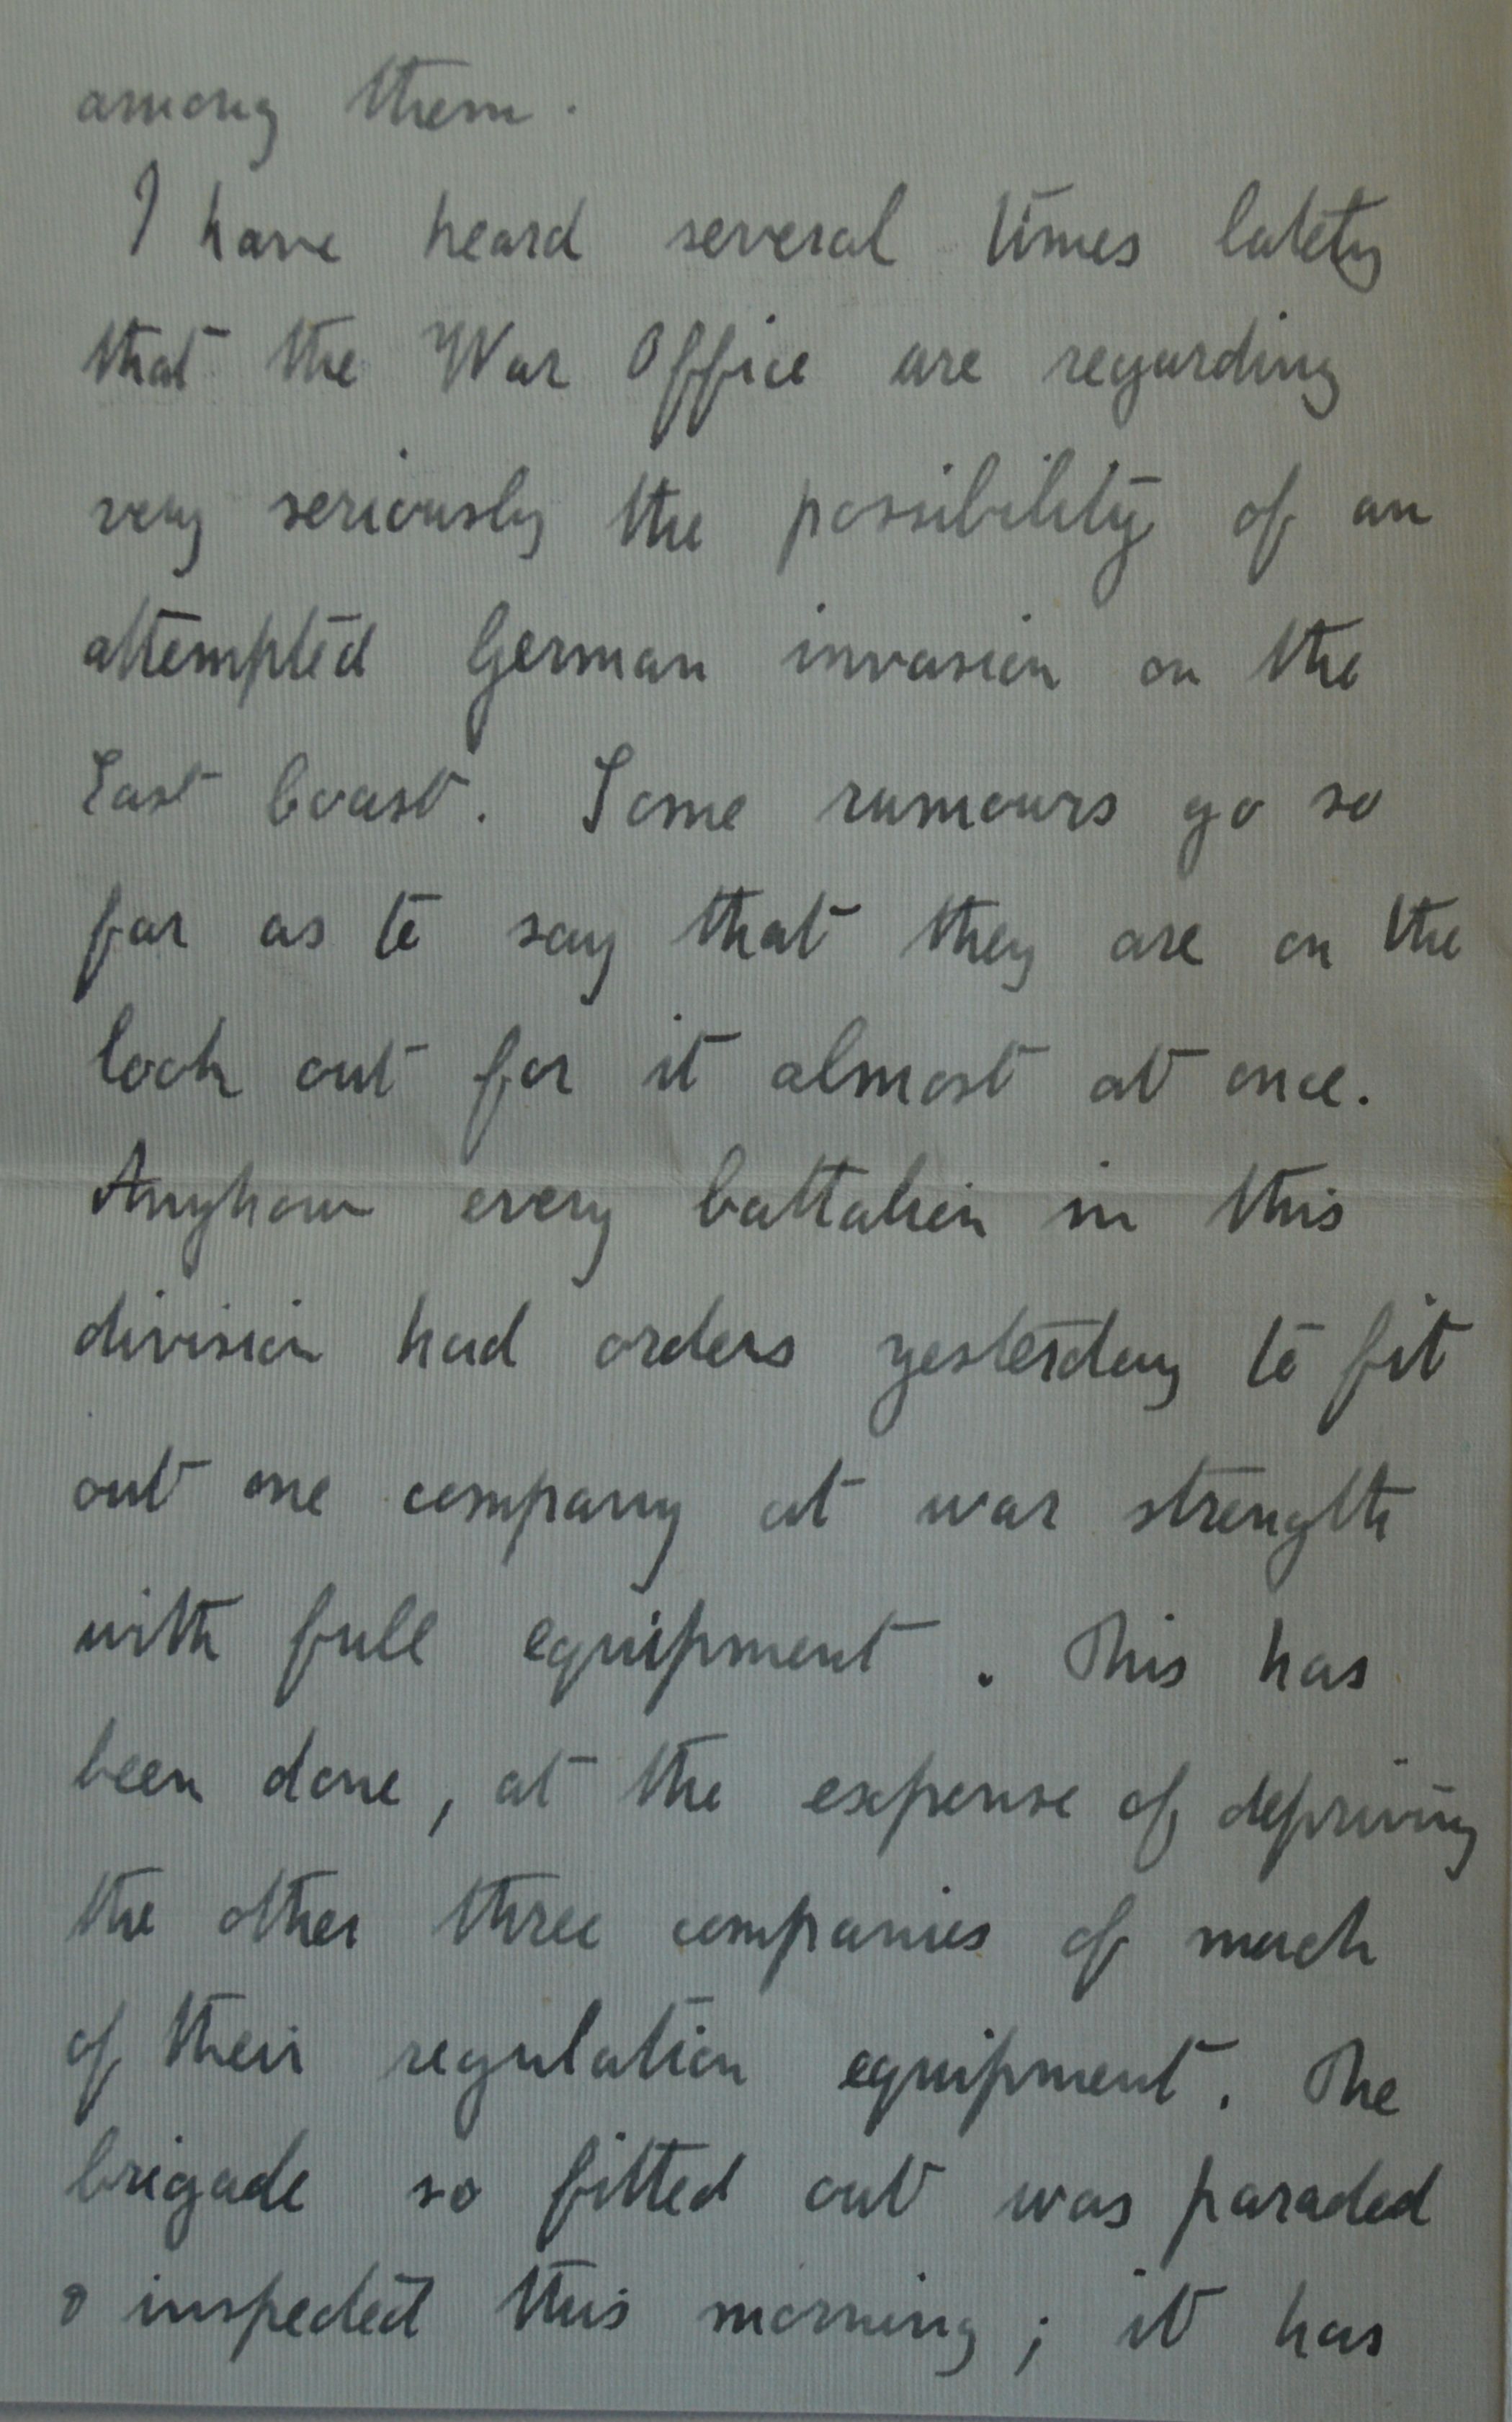 among them.
I have heard several times lately
that the War Office are regarding
very seriously the possibility of an
attempted German invasion on the
East Coast. Some rumours go so
far as to say that they are on the
look out for it almost at once.
Anyhow every battalion in this
division had orders yesterday to fit
out one company at war strength
with full equipment. This has
been done, at the expense of depriving
the other three companies of much
of their regulation equipment. The
brigade so fitted out was paraded
& inspected this morning; it has